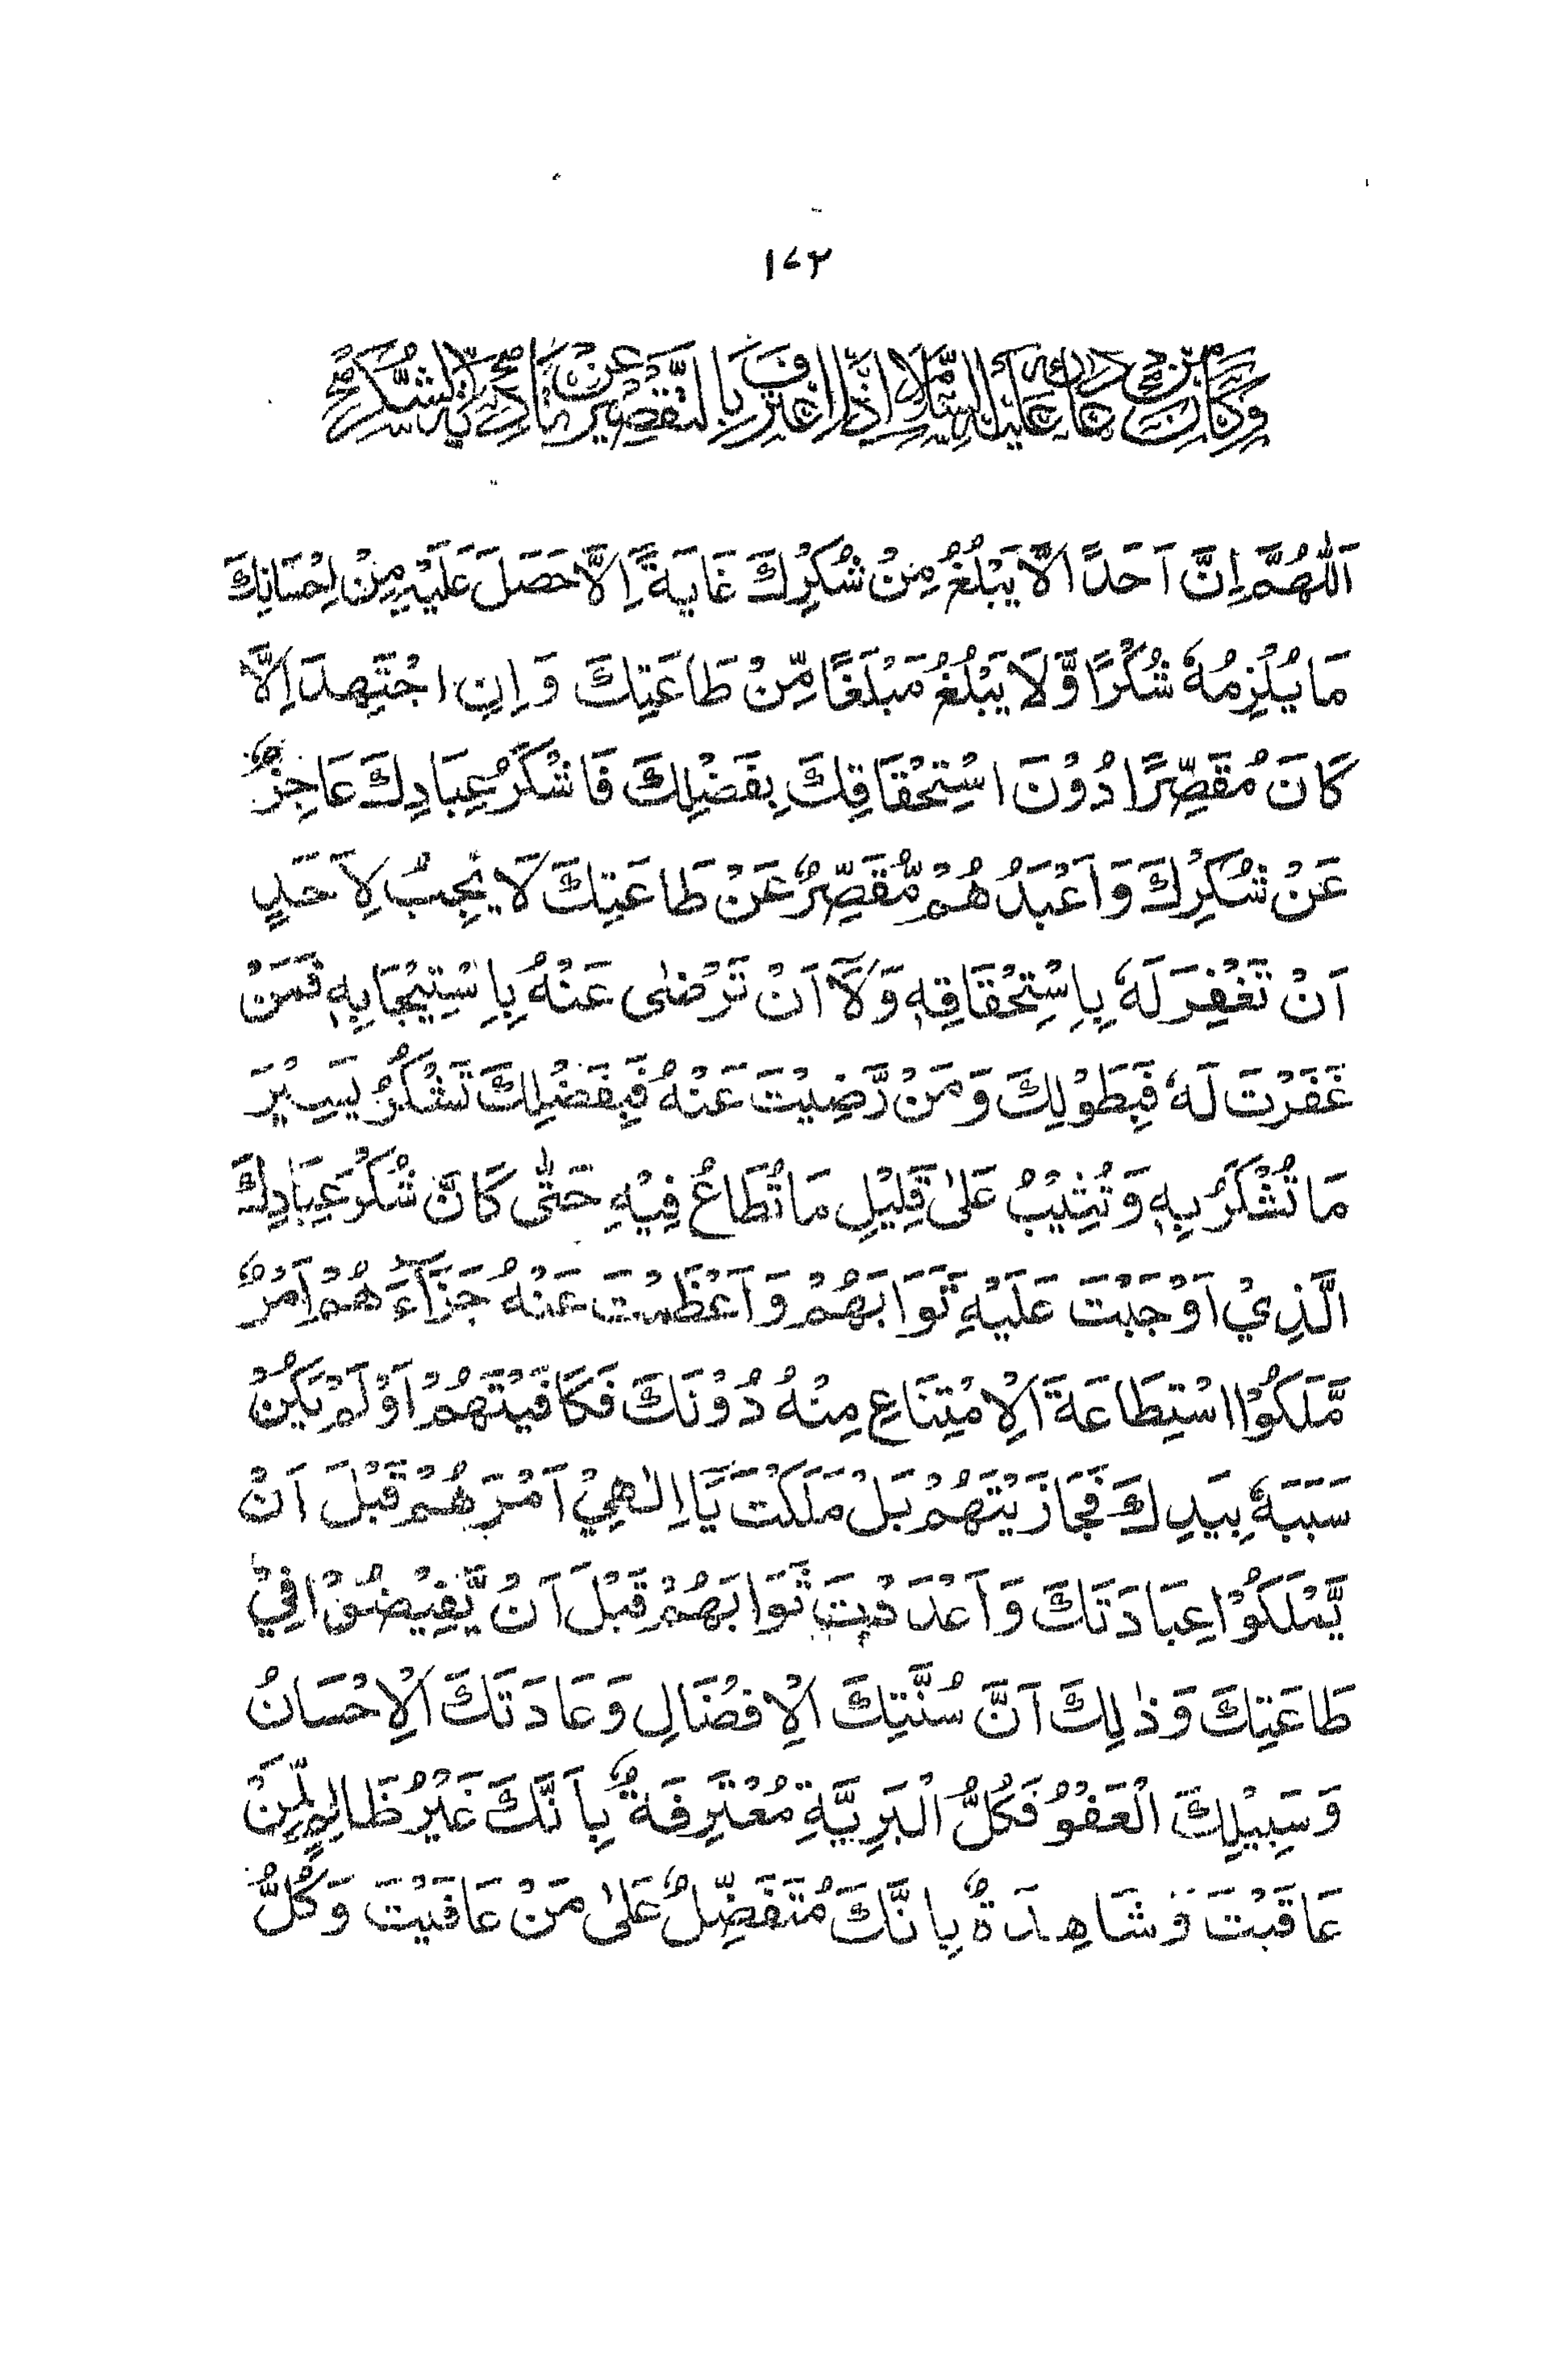 ۱۷۲
وَكَانَ مِنْ دُعَائِهٖ عَلَيْهِ السَّلَامُ اِذَا اعْتَرَفَ بِالتَّقْصِيْرِ عَنْ تَاْدِيَةِ الشُّكْرِ
اَللّٰهُمَّ اِنَّ اَحَدًا لَّا يَبْلُغُ مِنْ شُكْرِكَ غَايَةً اِلَّا حَصَلَ عَلَيْهِ مِنْ اِحْسَانِكَ
مَا يُلْزِمُهٗ شُكْرًا وَّلَا يَبْلُغُ مَبْلَغًا مِّنْ طَاعَتِكَ وَاِنِ اجْتَهَدَ اِلَّا
كَانَ مُقَصِّرًا دُوْنَ اسْتِحْقَاقِكَ بِفَضْلِكَ فَاَشْكَرُ عِبَادِكَ عَاجِزٌ
عَنْ شُكْرِكَ وَاَعْبَدُهُمْ مُّقَصِّرٌ عَنْ طَاعَتِكَ لَا يَجِبُ لِاَحَدٍ
اَنْ تَغْفِرَ لَهٗ بِاسْتِحْقَاقِهٖ وَلَآ اَنْ تَرْضٰى عَنْهُ بِاسْتِيْجَابِهٖ فَمَنْ
غَفَرْتَ لَهٗ فَبِطَوْلِكَ وَمَنْ رَّضِيْتَ عَنْهُ فَبِفَضْلِكَ تَشْكُرُ يَسِيْرَ
مَا تُشْكَرُ بِهٖ وَتُثِيْبُ عَلٰى قَلِيْلِ مَا تُطَاعُ فِيْهِ حَتّٰى كَاَنَّ شُكْرَ عِبَادِكَ
الَّذِيْ اَوْجَبْتَ عَلَيْهِ ثَوَابَهُمْ وَاَعْظَمْتَ عَنْهُ جَزَآءَهُمْ اَمْرٌ
مَّلَكُوْا اسْتِطَاعَةَ الْاِمْتِنَاعِ مِنْهُ دُوْنَكَ فَكَافَيْتَهُمْ اَوْ لَمْ يَكُنْ
سَبَبَهٗ بِيَدِكَ فَجَازَيْتَهُمْ بَلْ مَلَكْتَ يَا اِلٰهِيْ اَمْرَهُمْ قَبْلَ اَنْ
يَّمْلَكُوْا عِبَادَتَكَ وَاَعْدَدْتَ ثَوَابَهُمْ قَبْلَ اَنْ يُّفِيْضُوْا فِيْ
طَاعَتِكَ وَذٰلِكَ اَنَّ سُنَّتِكَ الْاِفْضَالِ وَعَادَتَكَ الْاِحْسَانُ
وَسَبِيْلِكَ الْعَفْوُ فَكُلُّ الْبَرِيَّةِ مُعْتَرِفَةٌ بِاَنَّكَ غَيْرُ ظَالِمٍ لِّمَنْ
عَاقَبْتَ وَشَاهِدَةٌ بِاَنَّكَ مُتَفَضِّلٌ عَلٰى مَنْ عَافَيْتَ وَكُلٌّ